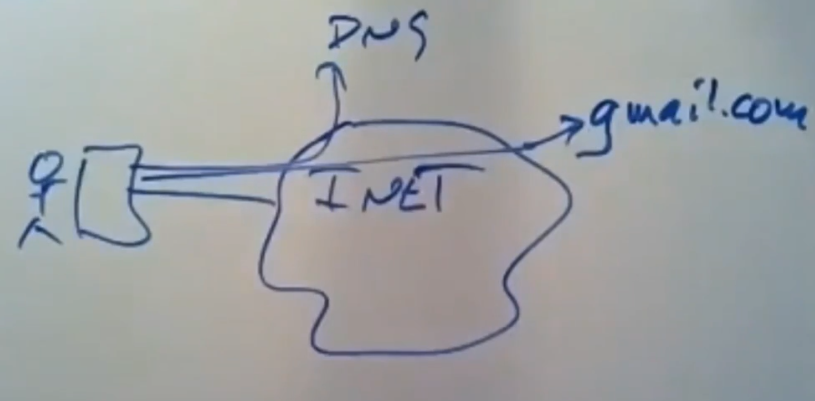 DNS
gmail.com
INET